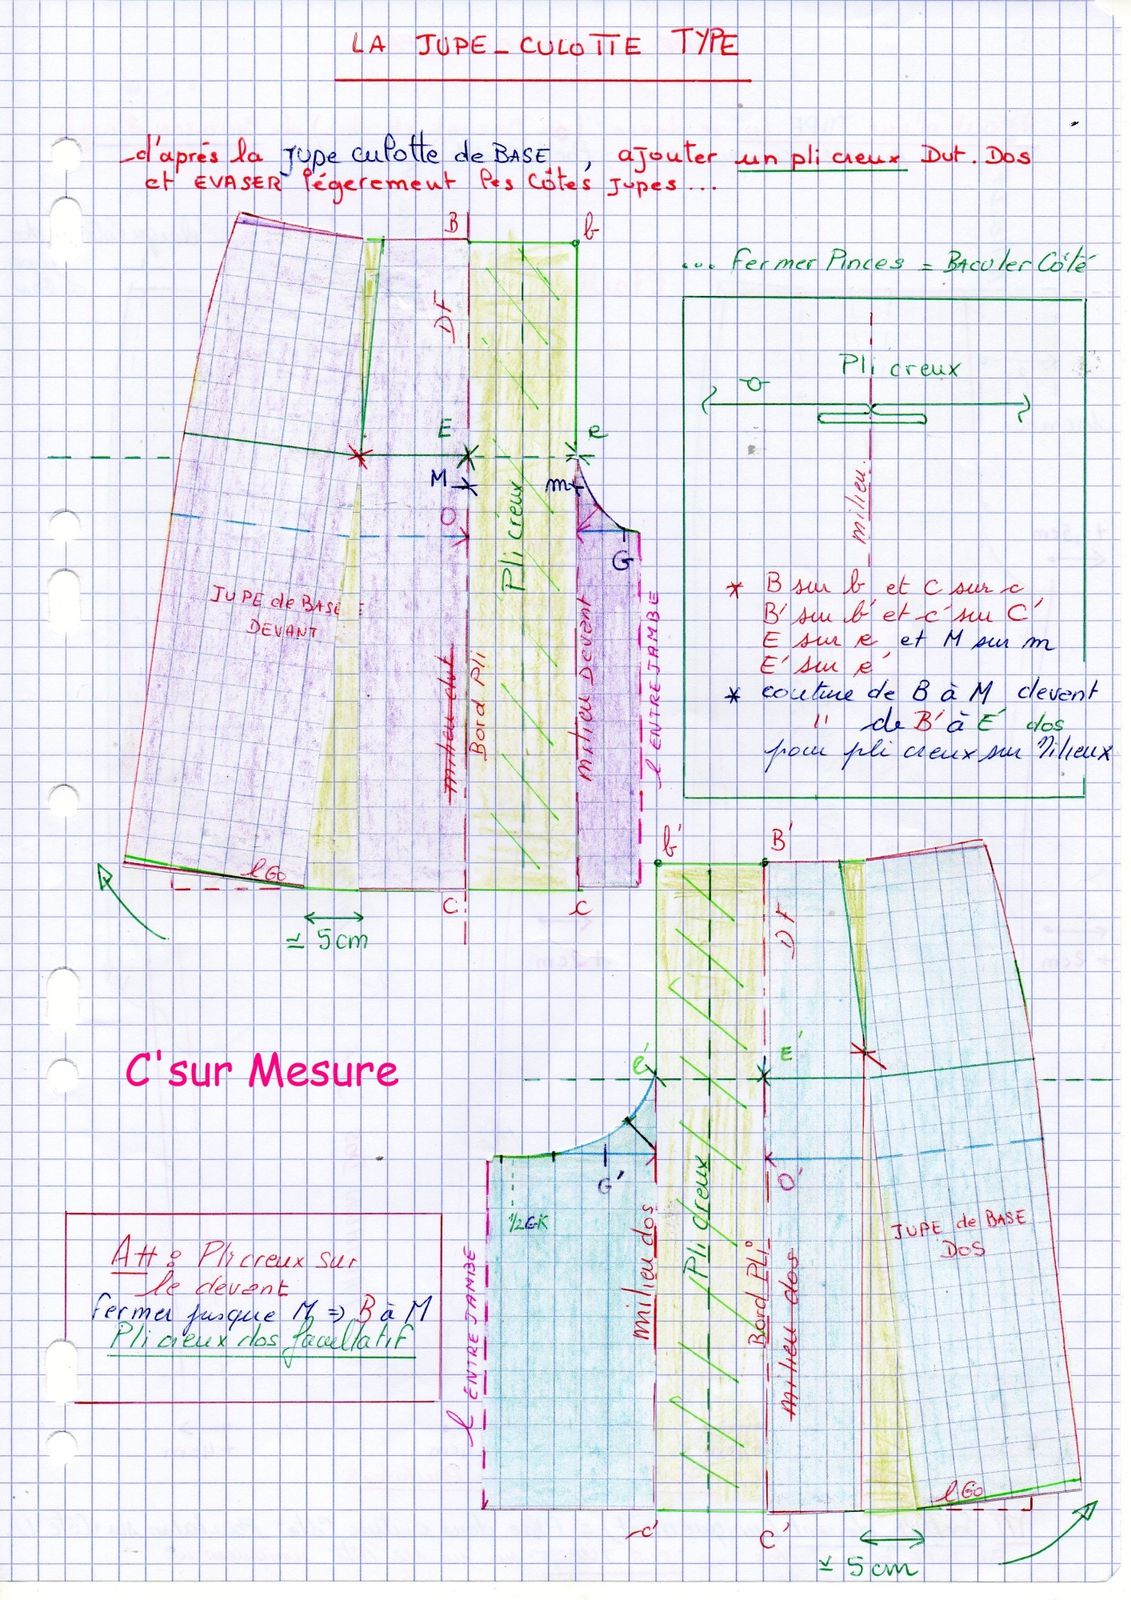 LA JUPE-CULOTTE TYPE
d'après la JUPE culotte de BASE, ajouter un pli creux Dvt. Dos
et EVASER légèrement les Côtés Jupes...
B
b
... fermer Pinces = BAculer Côté
DF
Pli creux
milieu
E
e
M
m
O
G
Pli creux
JUPE de BASE
DEVANT
milieu dvt
Bord Pli
Milieu Devant
l ENTREJAMBE
* B sur b et C sur c
B' sur b' et c' sur C'
E sur e et M sur m
E' sur e'
* couture de B à M devent
" de B' à E' dos
pour pli creux sur Milieux
l Go
C
c
≃ 5cm
b'
B'
DF
C'sur Mesure
e'
E'
G'
O'
1/2GK
Pli creux
milieu dos
Bord PLi
milieu dos
JUPE de BASE
DOS
l ENTREJAMBE
Att : Pli creux sur
le devant
fermer jusque M => B à M
Pli creux dos facultatif
l Go
c'
C'
≃ 5cm